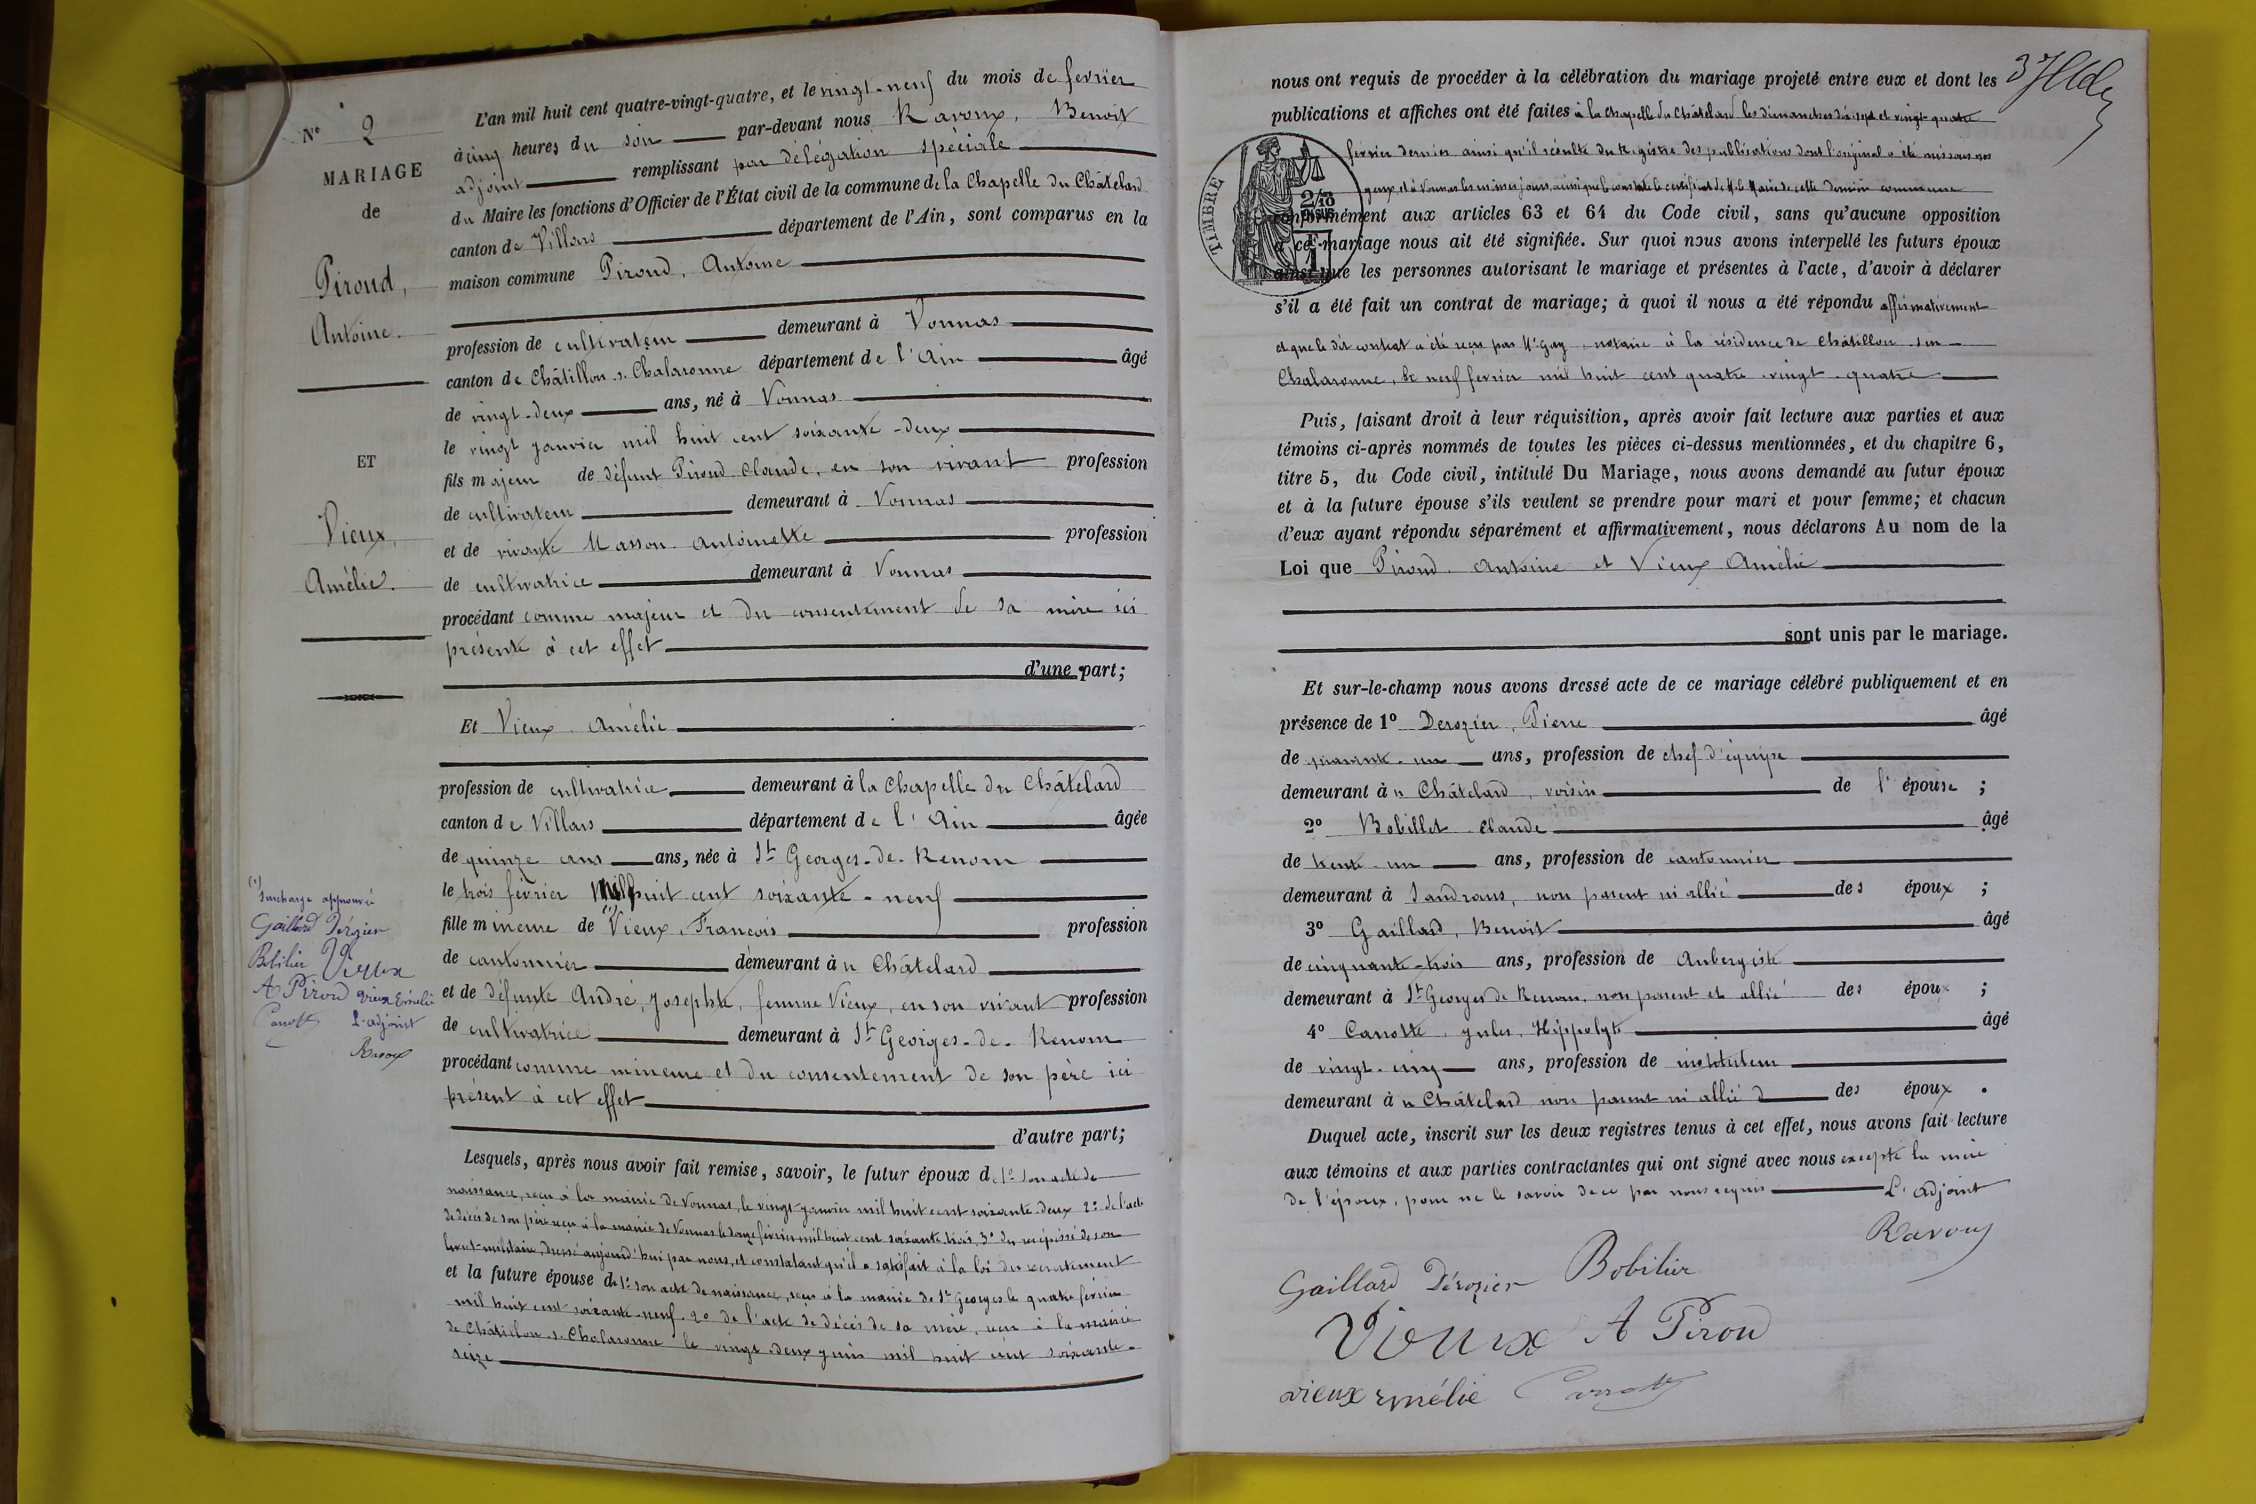 N° 2
MARIAGE
de
Piroud,
Antoine.
ET
Vieux,
Amélie.
(1)
surcharge approuvée
Gaillard Dérozier
Bobilier Vieux
A Pirou vieux Emélie
Carrotte L'adjoint
Ravoux
L'an mil huit cent quatre-vingt-quatre, et le vingt-neuf du mois de fevrier
à cinq heures du soir par-devant nous Ravoux, Benoit
adjoint remplissant par délégation spéciale
du Maire les fonctions d'Officier de l'État civil de la commune de la Chapelle du Châtelard
canton de Villars département de l'Ain, sont comparus en la
maison commune Piroud, Antoine
profession de cultivateur demeurant à Vonnas
canton de Châtillon-s-Chalaronne département de l'Ain âgé
de vingt-deux ans, né à Vonnas
le vingt janvier mil huit cent soixante-deux
fils majeur de défunt Piroud Claude, en son vivant profession
de cultivateur demeurant à Vonnas
et de vivante Masson Antoinette profession
de cultivatrice demeurant à Vonnas
procédant comme majeur et du consentement de sa mère ici
présente à cet effet
d'une part;
Et Vieux Amélie
profession de cultivatrice demeurant à la Chapelle du Châtelard
canton de Villars département de l'Ain âgée
de quinze ans ans, née à St Georges-de-Renom
le trois février Mil huit cent soixante-neuf
fille mineure de (1) Vieux, François profession
de cantonnier demeurant à u Châtelard
et de défunte André, Josephte, femme Vieux, en son vivant profession
de cultivatrice demeurant à St Georges-de-Renom
procédant comme mineure et du consentement de son père ici
présent à cet effet
d'autre part;
Lesquels, après nous avoir fait remise, savoir, le futur époux de 1° son acte de
naissance, reçu à la mairie de Vonnas, le vingt janvier mil huit cent soixante-deux 2° de l'acte
de décès de son père reçu à la mairie de Vonnas le février mil huit cent soixante trois, 3° du récépissé de son
livret-militaire, dressé aujourd'hui par nous, et constatant qu'il a satisfait à la loi du recrutement
et la future épouse de 1° son acte de naissance, reçu à la mairie de St Georges le quatre février
mil huit cent soixante-neuf 2° de l'acte de décès de sa mère, reçu à la mairie
de Châtillon-s-Chalaronne le vingt-deux juin mil huit cent soixante-
seize
nous ont requis de procéder à la célébration du mariage projeté entre eux et dont les
publications et affiches ont été faites à la Chapelle du Châtelard les dimanches dix-sept et vingt-quatre
février dernier ainsi qu'il résulte du Registre des publications dont l'original a été mis sous nos
yeux et à Vonnas les mêmes jours, ainsi que le constate le certificat de M. le Maire de cette dernière commune
conformément aux articles 63 et 64 du Code civil, sans qu'aucune opposition
à ce mariage nous ait été signifiée. Sur quoi nous avons interpellé les futurs époux
ainsi que les personnes autorisant le mariage et présentes à l'acte, d'avoir à déclarer
s'il a été fait un contrat de mariage; à quoi il nous a été répondu affirmativement
et que le dit contrat a été reçu par Me Gay, notaire à la résidence de Châtillon-sur-
Chalaronne, le neuf fevrier mil huit cent quatre-vingt-quatre
TIMBRE
2/10
EN SUS
1F
Puis, faisant droit à leur réquisition, après avoir fait lecture aux parties et aux
témoins ci-après nommés de toutes les pièces ci-dessus mentionnées, et du chapitre 6,
titre 5, du Code civil, intitulé Du Mariage, nous avons demandé au futur époux
et à la future épouse s'ils veulent se prendre pour mari et pour femme; et chacun
d'eux ayant répondu séparément et affirmativement, nous déclarons Au nom de la
Loi que Piroud Antoine et Vieux Amélie
sont unis par le mariage.
Et sur-le-champ nous avons dressé acte de ce mariage célébré publiquement et en
présence de 1° Derozier, Pierre âgé
de un ans, profession de chef d'équipe
demeurant à u Châtelard, voisin de l'épouse;
2° Bobillet Claude âgé
de trente-un ans, profession de cantonnier
demeurant à Sandrans, non parent ni allié des époux;
3° Gaillard, Benoit âgé
de cinquante-trois ans, profession de Aubergiste
demeurant à St Georges de Renom, non parent ni allié des époux;
4° Carrotte, Jules, Hippolyte âgé
de vingt-cinq ans, profession de instituteur
demeurant à u Châtelard non parent ni allié d des époux.
Duquel acte, inscrit sur les deux registres tenus à cet effet, nous avons fait lecture
aux témoins et aux parties contractantes qui ont signé avec nous excepté la mère
de l'époux, pour ne le savoir de ce par nous requis L'adjoint
Ravoux
Gaillard Dérozier Bobilier
Vieux A Pirou
vieux Emélie Carrotte